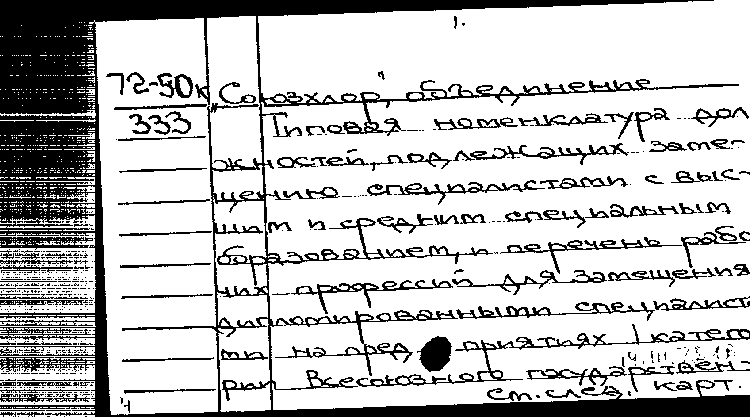 1.
72-50к „Союзхлор", объединение
333 Типовая номенклатура дол
жностей, подлежащих заме-
щению специалистами с выс-
шим и средним специальным
образованием, и перечень рабо
чих профессий для замещения
дипломированными специалиста
ми на пред приятиях I катего
рии Всесоюзного государствен-
см. след. карт.